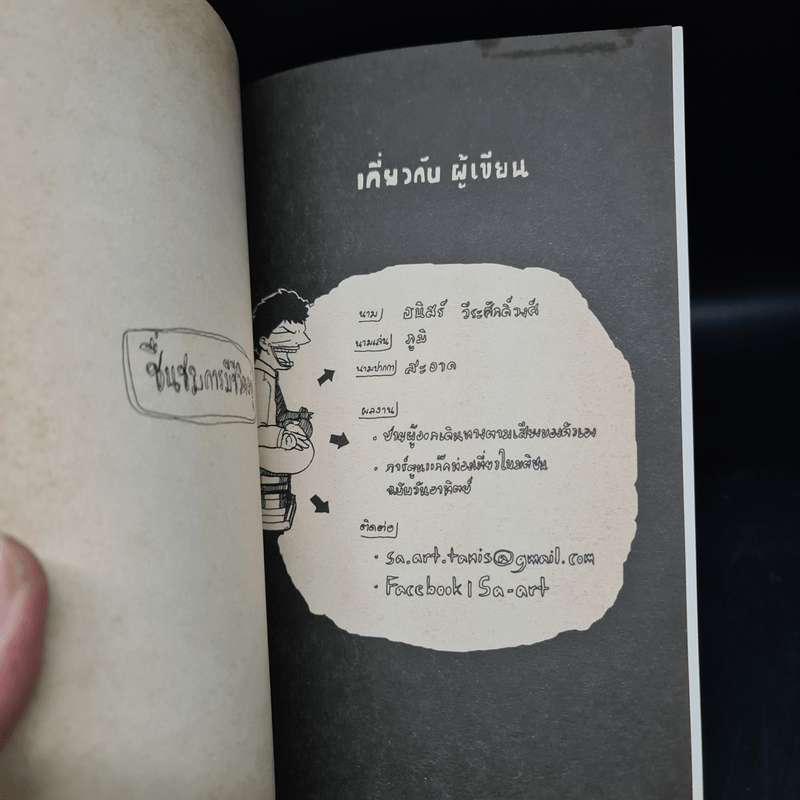 ชื่นชมการมีชีวิต
เกี่ยวกับ ผู้เขียน
นาม ธนิสร์ วีระศักดิ์วงศ์
นามเล่น ภูมิ
นามปากกา สะอาด
ผลงาน
• ชายผู้ออกเดินทางตามเสียงของตัวเอง
• การ์ตูนแก๊กท่องเที่ยวในมติชน
ฉบับวันอาทิตย์
ติดต่อ
• sa.art.tanis@gmail.com
• Facebook | Sa-art